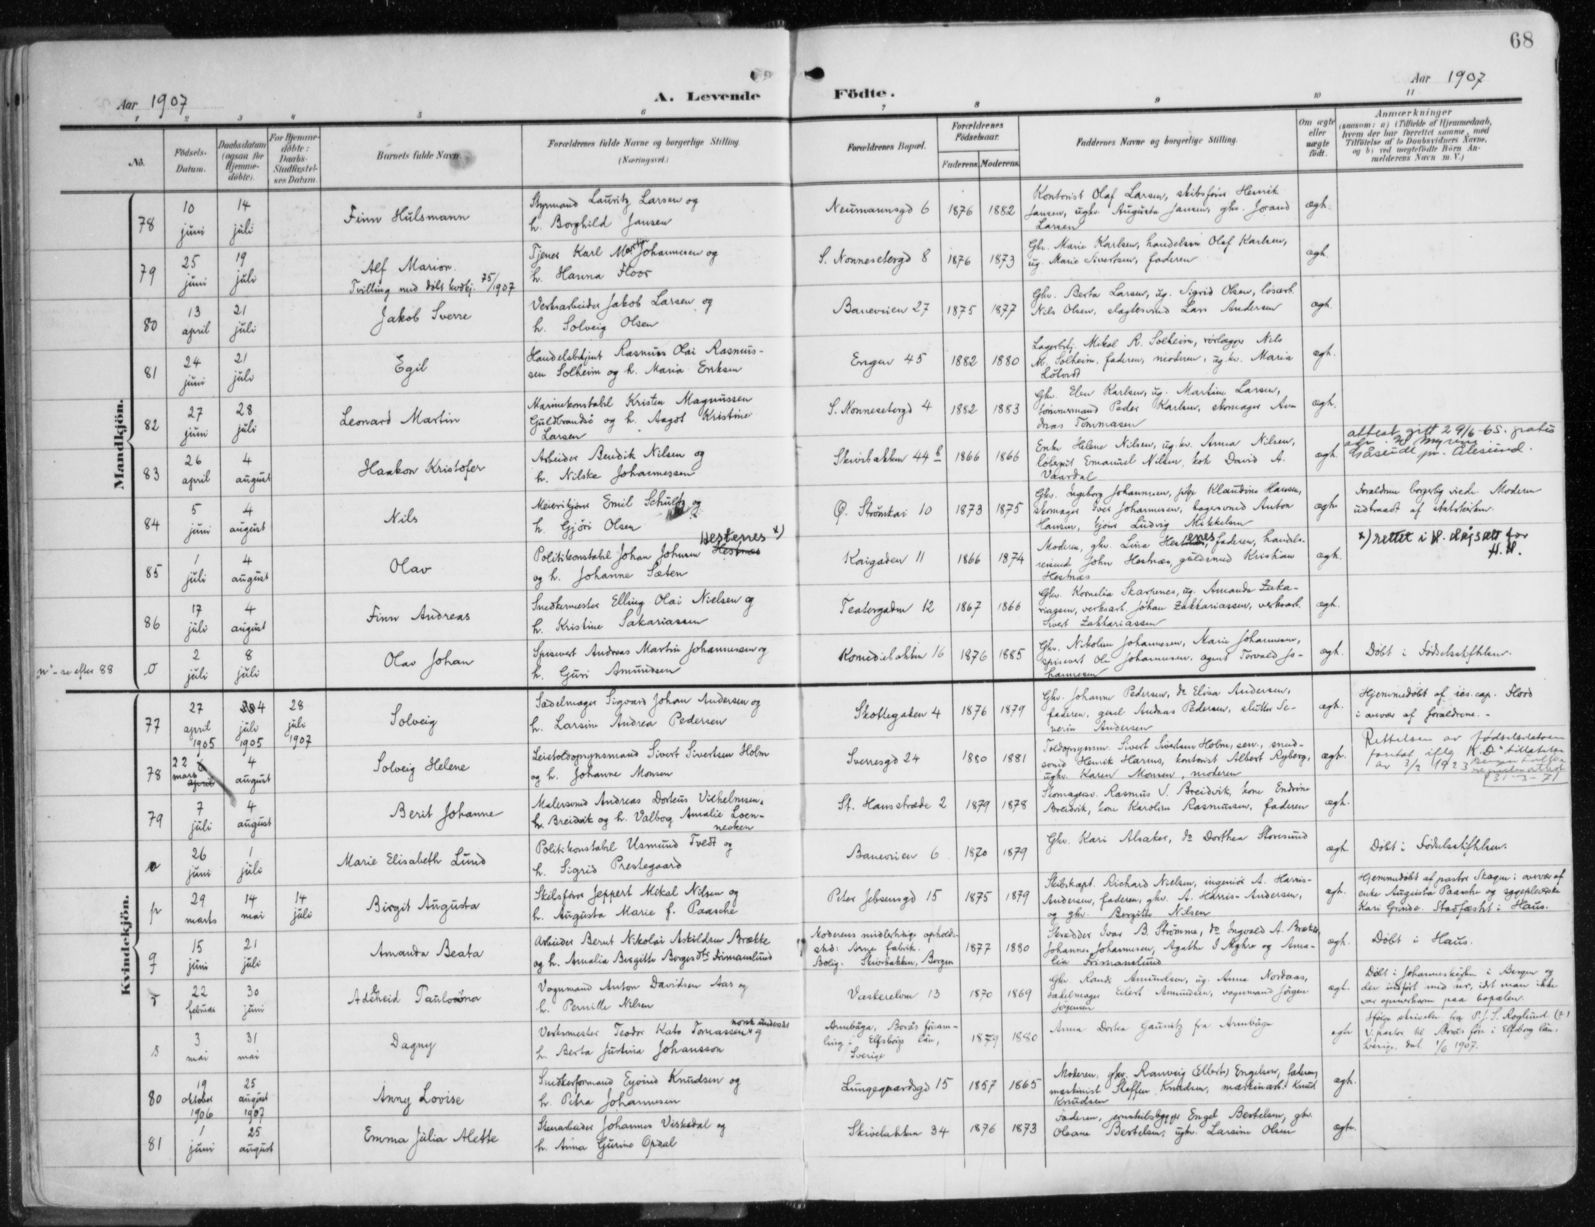 68
Aar 1907
A. Levende
Fødte.
Aar 1907
1 2 3 4 5 6 7 8 9 10 11
No.
Fødsels-Datum.
Daabsdatum (ogsaa for Hjemme-døbte).
For Hjemme-døbte: Daabs-Stadfæstel-ses Datum.
Barnets fulde Navn.
Forældrenes fulde Navne og borgerlige Stilling.
(Næringsvei.)
Forældrenes Bopæl.
Forældrenes Fødselsaar.
Faderens. Moderens.
Faddernes Navne og borgerlige Stilling.
Om ægte eller uægte født.
Anmærkninger
Mandkjøn.
78 10 juni 14 juli Finn Hulsmann
Styrmand Lauritz Larsen og
h. Borghild Jansen
Neumannsgd 6 1876 1882
Kontorist Olaf Larsen, skibsfører Henrik
Jansen, ugkv. Augusta Jansen, gkv.
Larsen
ægh.
79 25 juni 19 juli Alf Marion.
Tvilling med 75/1907
Tjener Karl Martin Johannesen og
h. Hanna Floor
S. Nonnesetergd 8 1876 1873
Gkv. Marie Karlsen, Olaf Karlsen,
ug. Marie Sivertsen, faderen
ægh.
80 13 april 21 juli Jakob Sverre
Verksarbeider Jakob Larsen og
h. Solveig Olsen
Baneveien 27 1875 1877
Gkv. Berta Larsen, ug. Sigrid Olsen,
Nils Olsen, Lars Andersen
ægh.
81 24 juni 21 juli Egil
Handelsbetjent Rasmus Olai Rasmus-
sen Solheim og h. Maria Eriksen
Engen 45 1882 1880
Lagerbtj. Mikal R. Solheim, rørlægger Nils
M. Solheim, faderen, moderen, ug.kv. Maria
ægh.
82 27 juni 28 juli Leonard Martin
Marinekonstabel Kristen Magnussen
Guldbrandsø og h. Aagot Kristine
Larsen
S. Nonnesetergd 4 1882 1883
Gkv. Elen Karlsen, ug. Martine Larsen,
tømmermand Peder Karlsen, skomager An-
dreas Tommasen
ægh.
83 26 april 4 august Haakon Kristofer
Arbeider Bendik Nilsen og
h. Nilske Johannessen
Skivebakken 44 b 1866 1866
Enke Helene Nilsen, ug.kv. Anna Nilsen,
Emanuel Nilsen, kok David A.
Vaardal
ægh.
attest gift 29/6-65.
Aalesund.
84 5 juni 4 august Nils
Meieribtjener Emil Schultz og
h. Gjøri Olsen
Ø. Strømkai 10 1873 1875
Gkv. Ingeborg Johannesen, pige Klaudine Hansen,
skomager Iver Johannesen, bagersvend Anton
Hansen, Ludvig Mikkelsen
ægh.
Forældrene borgerlig viede. Moderen
udtraadt af statskirken.
85 1 juli 4 august Olav
Hestenes x)
Politikonstabel Johan Johnsen Hestnes
og h. Johanne Sæten
Kaigaden 11 1866 1874
Moderen, gkv. Lina Hestenes, faderen, handels-
reisende John Hestnæs, guldsmed Kristian
Hestnæs
ægh.
x) rettet i H.
86 17 juli 4 august Finn Andreas
Snedkermester Elling Olai Nielsen og
h. Kristine Sakariassen
Teatergaden 12 1867 1866
Gkv. Kornelia Skarsenes, ug. Amanda Zaka-
riassen, verksarb. Johan Zakkariassen, verksarb.
Sivert Zakkariassen
ægh.
se efter 88
o 2 juli 8 juli Olav Johan
Spisevert Andreas Martin Johannessen og
h. Guri Amundsen
Komediebakken 16 1876 1885
Gkv. Nikoline Johannesen, Marie Johannesen,
spisevert Ole Johannesen, agent Torvald Jo-
hannesen
ægh.
Døbt i Fødselsstiftelsen.
Kvindekjøn.
77 27 april 1905 4 juli 1905 28 juli 1907 Solveig
Sadelmager Sigvard Johan Andersen og
h. Larsine Andrea Pedersen
Skottegaten 4 1876 1879
Gkv. Johanne Pedersen, do Elisa Andersen,
faderen, Andreas Pedersen, slutter Se-
verin Andersen
ægh.
Hjemmedøbt af res. cap. Flood
i nærvær af forældrene.
78 22 marts 4 august Solveig Helene
Leietoldopsynsmand Sivert Sivertsen Holm
og h. Johanne Monsen
Sverresgd 24 1880 1881
Toldopsynsm. Sivert Sivertsen Holm, sen., sned-
svend Henrik Harms, kontorist Albert Ryberg,
ugkv. Karen Monsen, moderen
ægh.
Rettelsen av fødselsdatoen
foretat iflg K.D's tillatelse
av 3/2 1923
31-3-71
79 7 juli 4 august Berit Johanne
Malersvend Andreas Dorteus Vilhelmsen
Breidvik og h. Valborg Amalie Loen-
necken
St. Hansstræde 2 1879 1878
Skomagersv. Rasmus V. Breidvik, kone Endrine
Breidvik, kone Karoline Rasmussen, faderen
ægh.
26 juni 1 juli Marie Elisabeth Lund
Politikonstabel Usmund Tvedt og
h. Sigrid Prestegaard
Baneveien 6 1870 1879
Gkv. Kari Alsaker, do Dorthea Storesund
ægh.
Døbt i Fødselsstiftelsen.
p 29 marts 14 mai 14 juli Birgit Augusta
Skibsfører Jeppert Mikal Nilsen og
h. Augusta Marie f. Paasche
Peter Jebsensgd 15 1875 1879
Skibskapt. Richard Nielsen, ingeniør A. Harris-
Andersen, faderen, gkv. A. Harris-Andersen,
og gkv. Bergitte Nilsen
ægh.
Hjemmedøbt af pastor Skagen i nærvær af
enke Augusta Paasche og sygepleierske
Kari Grinde. Stadfæstet i Haus.
q 15 juni 21 juli Amanda Beata
Arbeider Bernt Nikolai Askildsen Brække
og h. Amalia Birgitte Borgesdtr Frimanslund
Moderens midlertidige opholds-
sted: Arne fabrik.
Bolig: Skivebakken, Bergen
1877 1880
Skrædder Ivar B. Strømme, do Ingvald A. Brække,
Johannes Johannesen, Agathe og Ama-
lia Frimanslund
ægh.
Døbt i Haus.
r 22 februar 30 juni Adelheid Paulowna
Vognmand Anton Davidsen Aas og
h. Pernille Nilsen
Vaskerelven 13 1870 1869
Gkv. Randi Amundsen, ug. Anna Nordaas,
sadelmager Eilert Amundsen, vognmand Jørgen
Jørgensen
ægh.
Døbt i Johanneskirken i Bergen og
der indført med nr, idet man ikke
var opmerksom paa bopælen.
s 3 mai 31 mai Dagny
Verksmester Teodor Kato Tomassen og norsk undersaat
h. Berta Justina Johansson
Annebüga, Borås försam-
ling i Elfsborgs län,
Sverige
1879 1880
Anna Dortea fra Annebüga
ægh
Ifølge skrivelse fra P. J. S. Roglund
v. pastor til Borås förs. i Elfsborg län.
Sverige, dat. 1/6 1907.
80 19 oktober 1906 25 august 1907 Anny Lovise
Snedkerformand Eyvind Knudsen og
h. Petra Johannesen
Lungegaardsgd 15 1857 1865
Moderen, gkv. Ranveig Engelsen, faderen,
maskinist Steffen Knudsen, maskinarb. Knud
Knudsen
ægh.
81 1 juni 25 august Emma Julia Alette
Stenarbeider Johannes Virkesdal og
h. Anna Gurine Opdal
Skivebakken 34 1876 1873
Faderen, jernskibsbygger Engel Bertelsen, gkv.
Oleane Bertelsen, ugkv. Larsine Olsen
ægh.